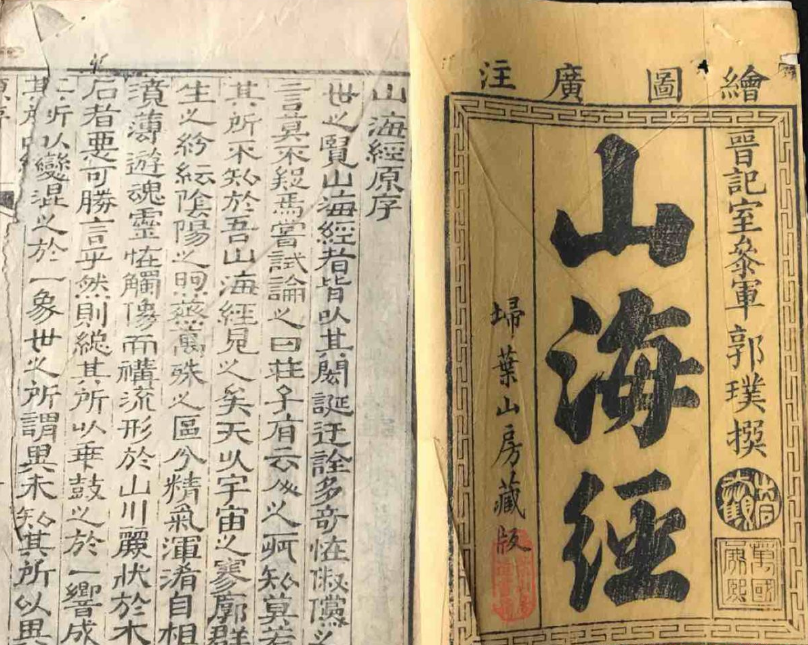 繪圖廣注
晉記室叅軍郭璞撰
山海經
埽葉山房藏版
山海經原序
世之覽山海經者皆以其閎誕迂誇多奇怪俶儻之
言莫不疑焉嘗試論之曰莊子有云人之所知莫若
其所不知於吾山海經見之矣夫以宇宙之寥廓群
生之紛紜陰陽之煦蒸萬殊之區分精氣渾淆自相
濆薄遊魂靈怪觸像而構流形於山川麗狀於木
石者惡可勝言乎然則總其所以乖鼓之於一響成
所以變混之於一象世之所謂異未知其所以異